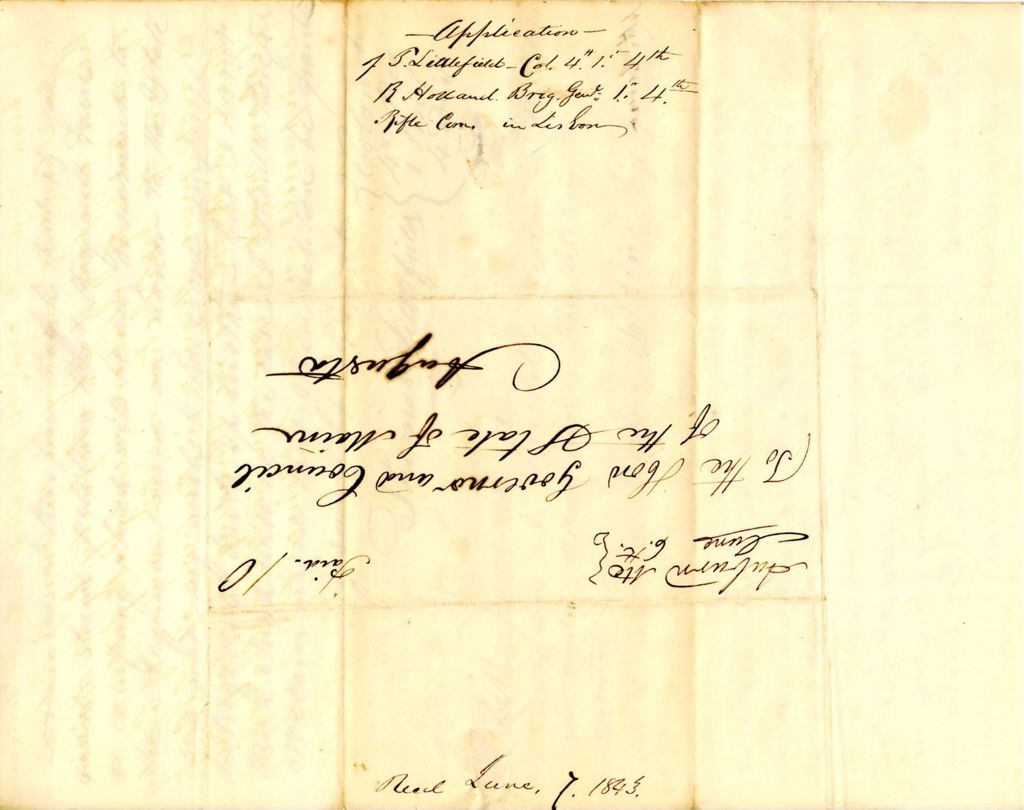 Application
of T. Littlefield - Col. 4" 1" 4th
R Holland. Brig. Genl. 1" 4th
Rifle Com. in Lisbon
Auburn Me }
June 6th }
Paid. 10
To the Hon Governor and Council
of the State of Maine
Augusta
Recd June, 7. 1843.